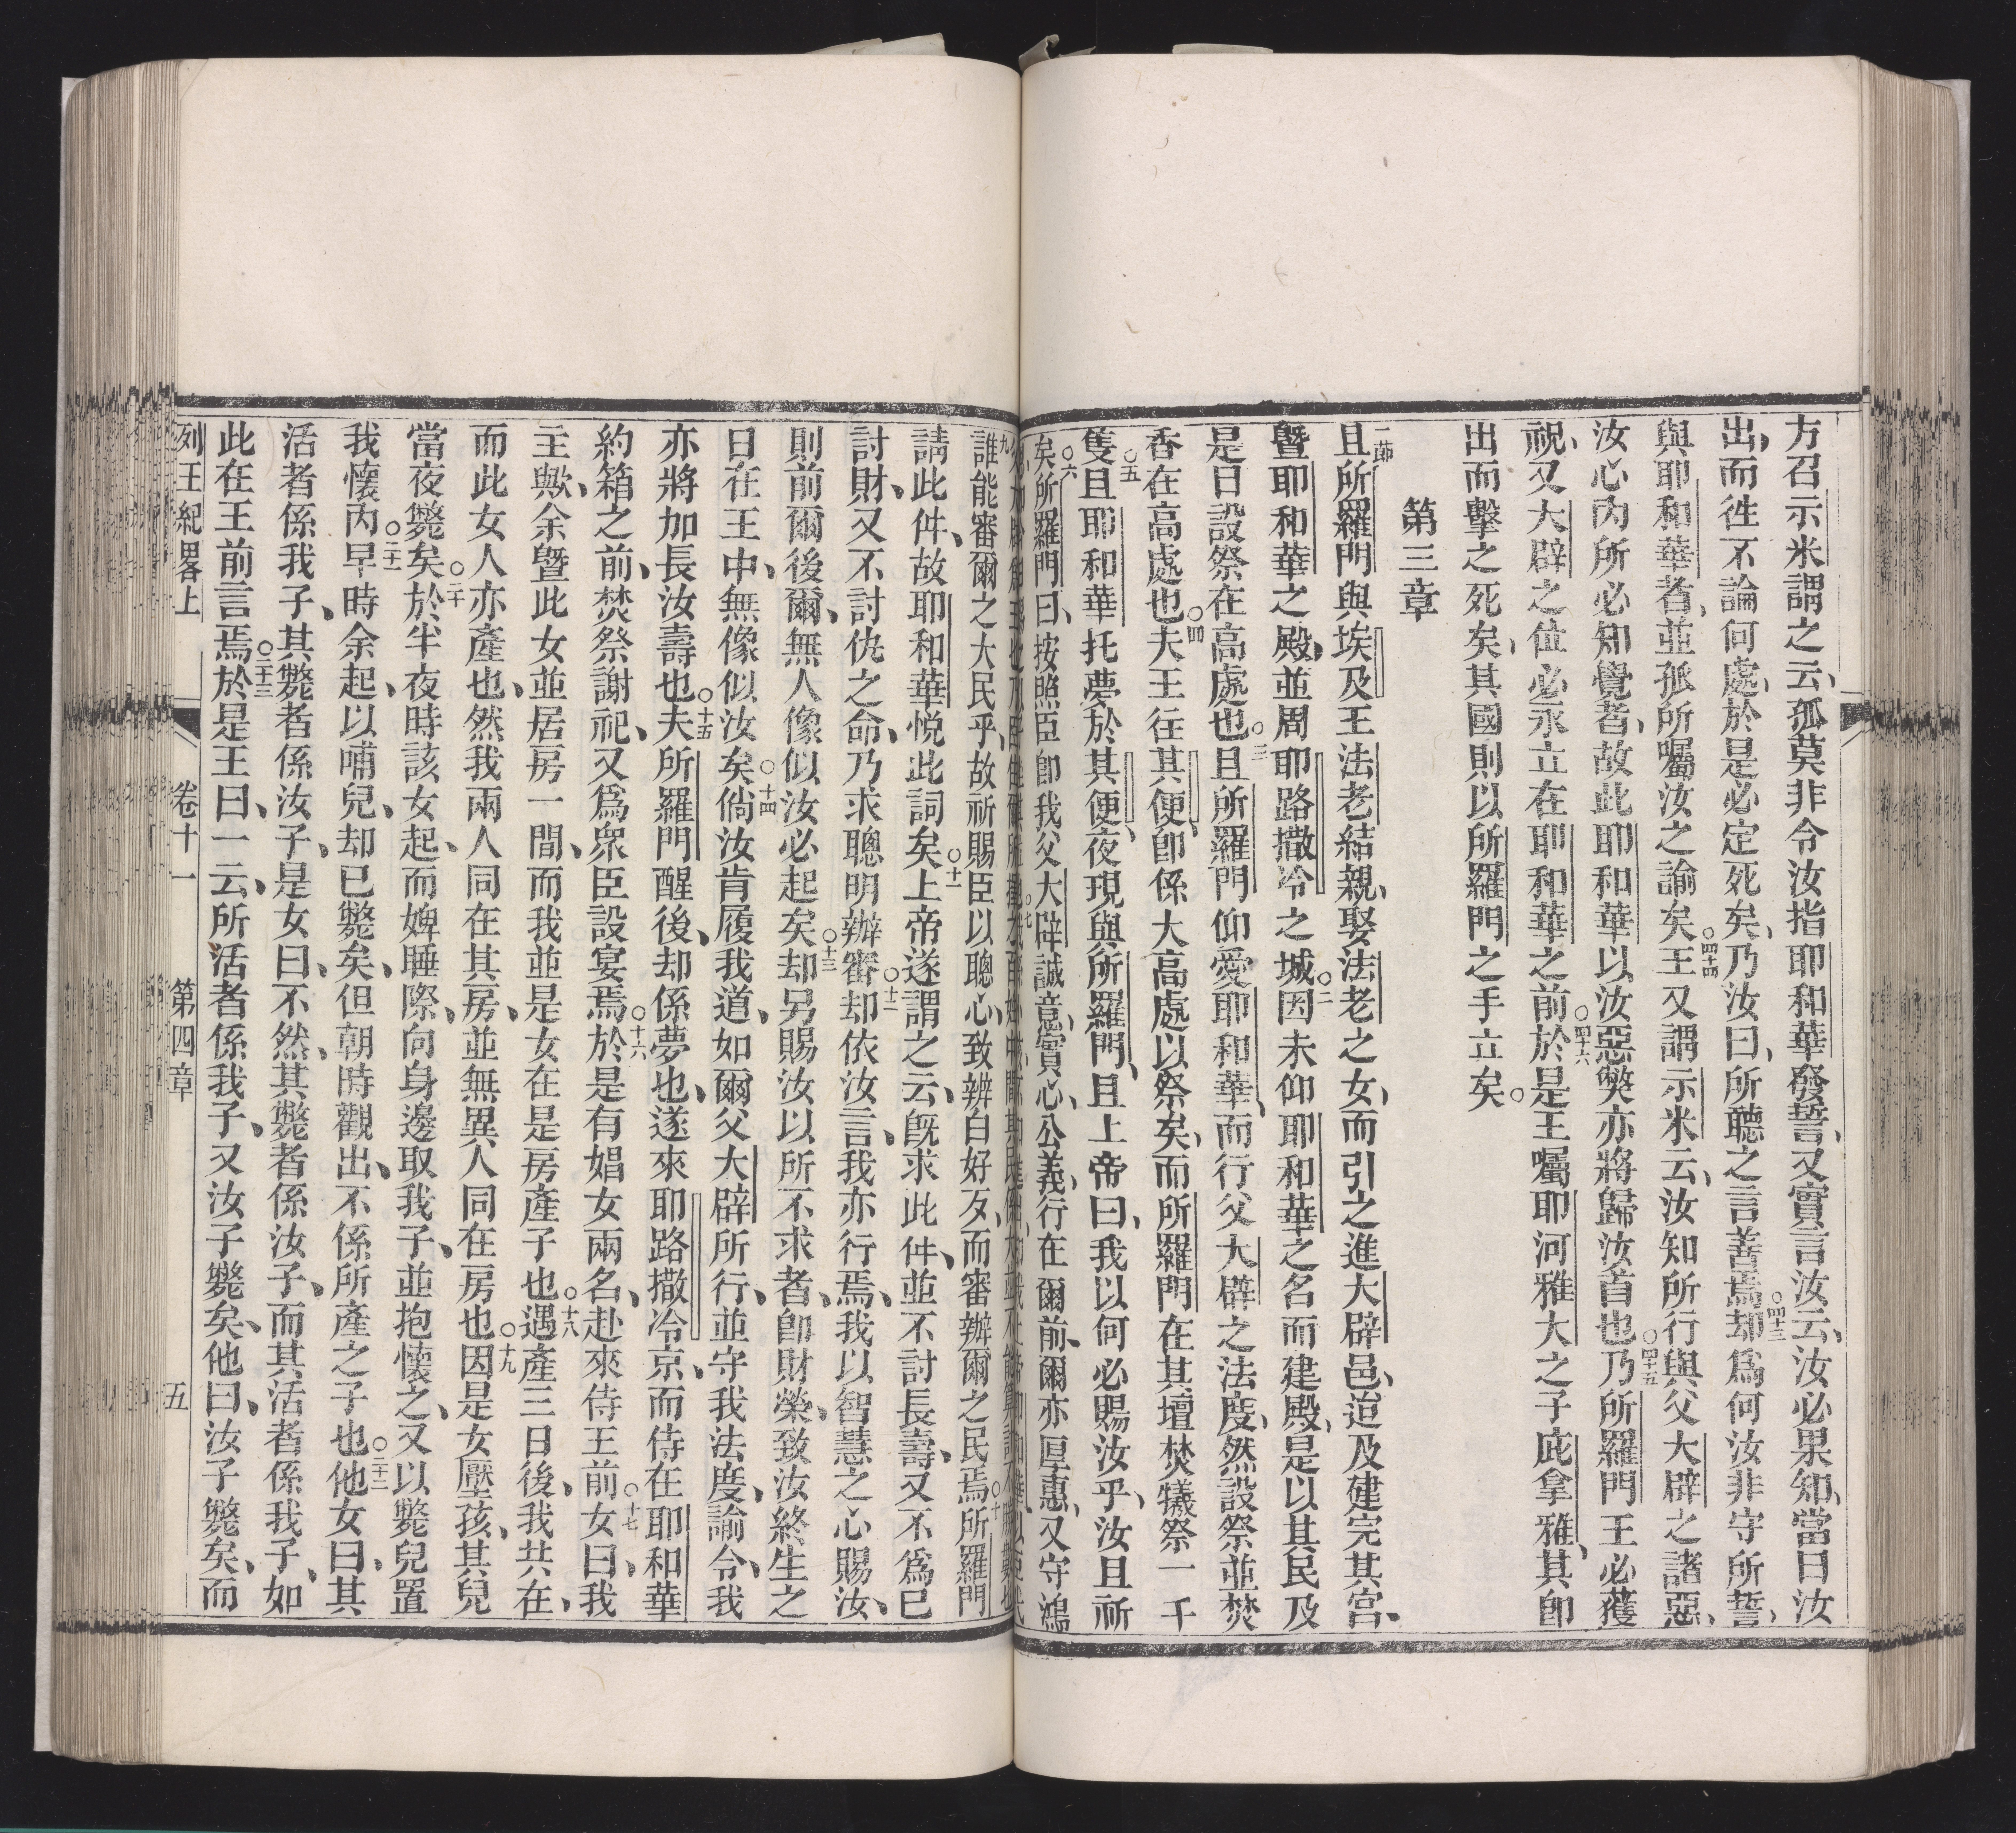 方召示米謂之云、孤莫非令汝指耶和華發誓、又實言汝云、汝必果知、當日汝
出、而徃不論何處、於是必定死矣、乃汝曰、所聽之言善焉、○四十三却爲何汝非守所誓、
與耶和華者、並孤所囑汝之諭矣、○四十四王又謂示米云、汝知所行與父大辟之諸惡、
汝心內所必知覺者、故此耶和華以汝惡獘亦將歸汝首也、○四十五乃所羅門王必獲
祝、又大辟之位必永立在耶和華之前、○四十六於是王囑耶河雅大之子庇拿雅、其卽
出而擊之死矣、其國則以所羅門之手立矣。
第三章
一節且所羅門與埃及王法老結親、娶法老之女、而引之進大辟邑、迨及建完其宮、
曁耶和華之殿、並周耶路撒冷之城、○二因未仰耶和華之名而建殿、是以其民及
是日設祭在高處也、○三且所羅門仰愛耶和華、而行父大辟之法度、然設祭並焚
香在高處也、○四夫王往其便、卽係大高處以祭矣、而所羅門在其壇焚犧祭一千
隻、○五且耶和華托夢於其便、夜現與所羅門、且上帝曰、我以何必賜汝乎、汝且祈
矣、○六所羅門曰、按照臣卽我父大辟誠意、實心、公義、行在爾前、爾亦厚惠、又守鴻
誰能審爾之大民乎、故祈賜臣以聰心、致辨白好歹、而審辦爾之民焉、○十所羅門
請此件、故耶和華悅此詞矣、○十一上帝遂謂之云、旣求此件、並不討長壽、又不爲已
討財、又不討仇之命、乃求聰明辦審、○十二却依汝言、我亦行焉、我以智慧之心賜汝、
則前爾後爾、無人像似汝必起矣、○十三却另賜汝以所不求者、卽財榮、致汝終生之
日在王中、無像似汝矣、○十四倘汝肯履我道、如爾父大辟所行、並守我法度、諭令、我
亦將加長汝壽也、○十五夫所羅門醒後、却係夢也、遂來耶路撒冷京、而侍在耶和華
約箱之前、焚祭謝祀、又爲衆臣設宴焉、○十六於是有娼女兩名、赴來侍王前、○十七女曰、我
主歟、余曁此女並居房一間、而我並是女在是房產子也、○十八遇產三日後、我共在、
而此女人亦產也、然我兩人同在其房、並無異人同在房也、○十九因是女壓孩、其兒
當夜斃矣、○二十於半夜時該女起、而婢睡際、向身邊取我子、並抱懷之、又以斃兒置
我懷內、○二十一早時余起、以哺兒、却已斃矣、但朝時觀出、不係所產之子也、○二十二他女曰、其
活者係我子、其斃者係汝子、是女曰、不然、其斃者係汝子、而其活者係我子、如
此在王前言焉、○二十三於是王曰、一云、所活者係我子、又汝子斃矣、他曰、汝子斃矣、而
列王紀畧上 卷十一 第四章 五